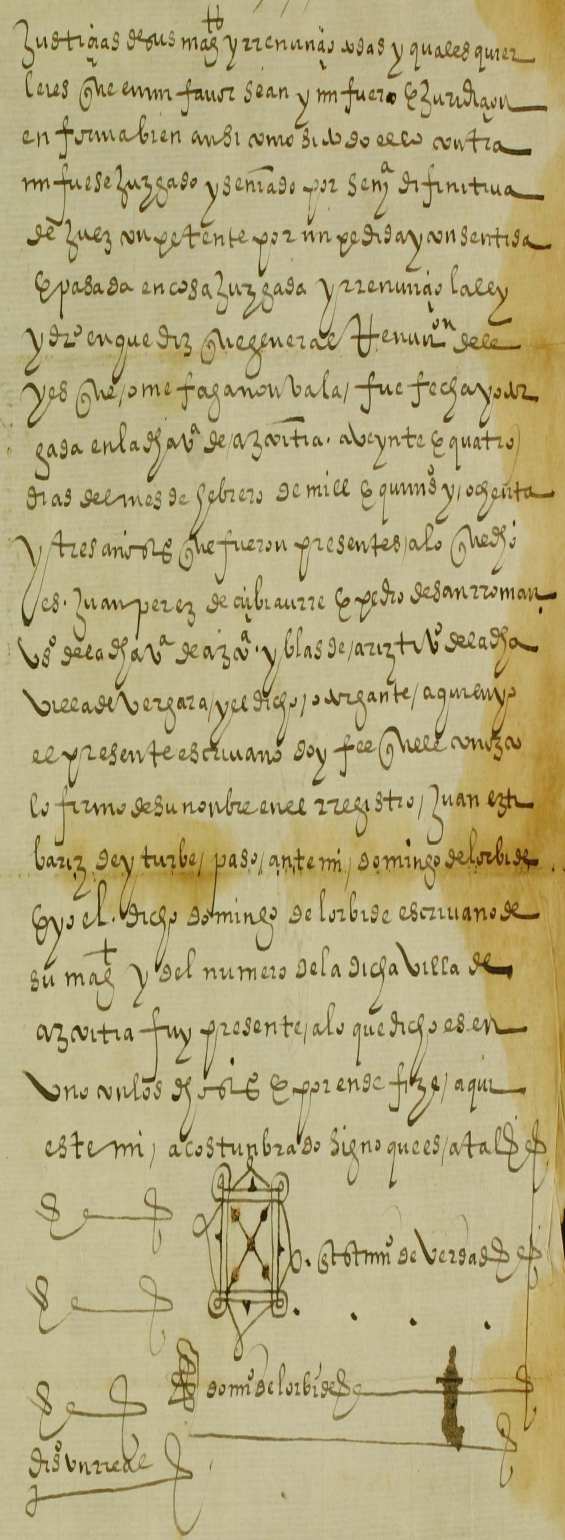 Justiçias de sus magt y rrenunçio todas y quales quier
leies que en mi favor sean y mi fuero e juridiçion
en forma bien ansi como si todo ello contra
mi fuese juzgado y sençiado por sença difinitiva
de juez conpetente por mi pedida y consentida
e pasada en cosa juzgada y rrenunçio la ley
y dro en que diz que general Renunçon de le
yes que ome faga non vala, fue fecha y otor
gada en la dha va de azcoitia a veynte e quatro
dias del mes de hebrero de mill e quinos y ochenta
y tres anos tos que fueron presentes a lo que dho
es Juan perez de cubiaurre e pedro de san rroman
vos de la dha va de azca y blas de ariztio de la dha
villa de vergara, y el dicho otorgante, a quien yo
el presente escrivano doy fee que le conozco
lo firmo de su nonbre en el rregistro, Juan ezti
bariz de yturbe, paso, ante mi, domingo de lorbide
E yo el dicho domingo de lorbide escrivano de
su magt y del numero de la dicha villa de
azcoitia fuy presente, a lo que dicho es en
uno con los dhos tos e por ende fize, aqui
este mi, acostunbrado signo que es, a tal
en testimo de verdad
domo de lorbide
dros un rreal